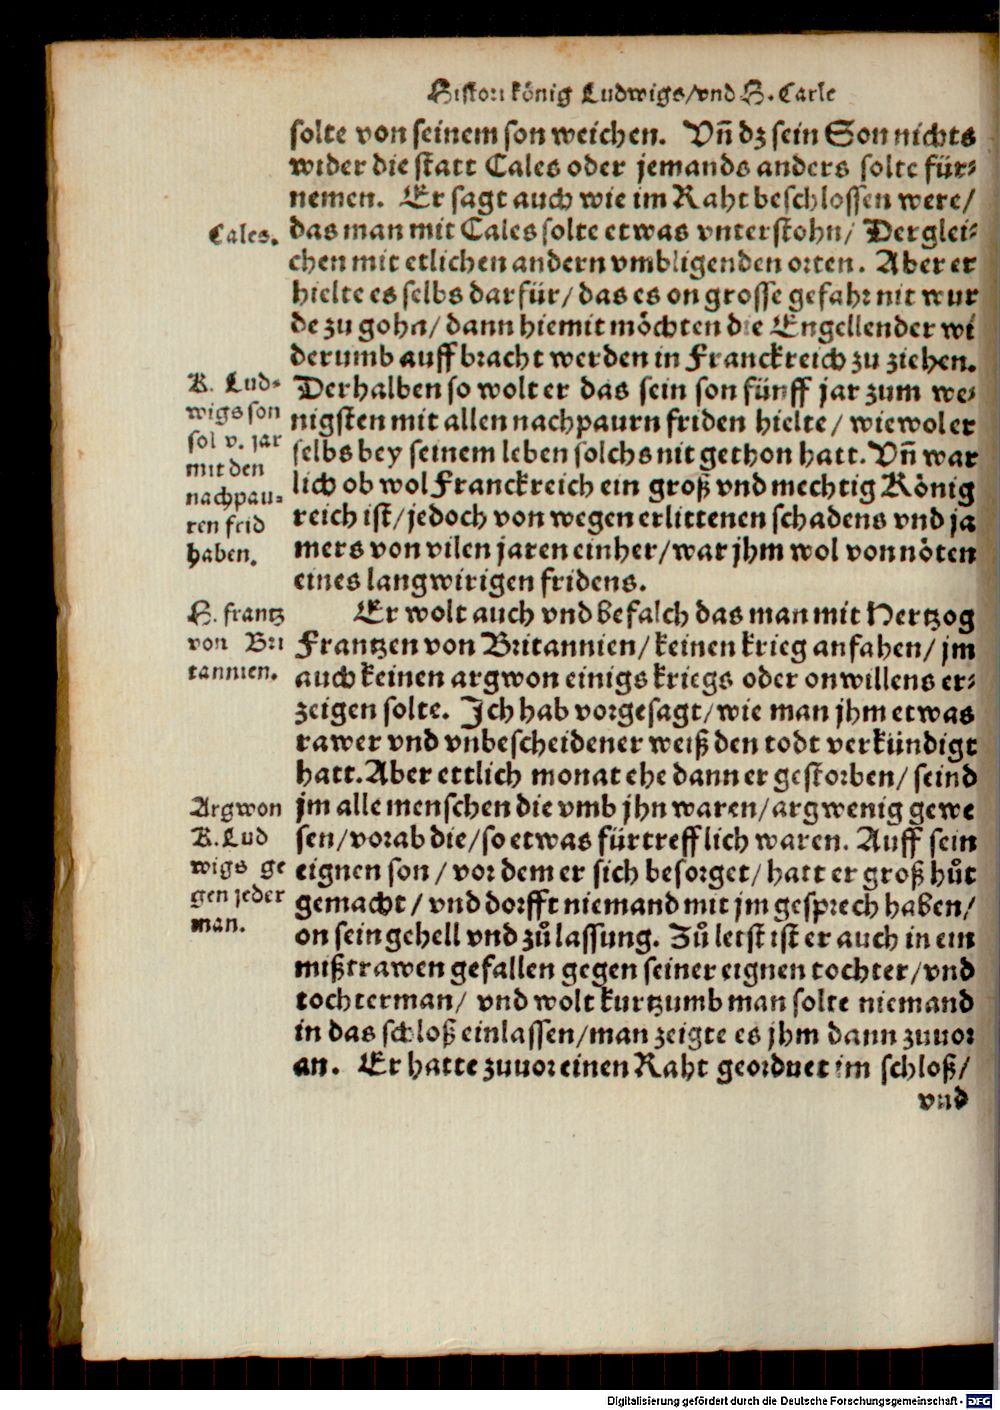 Histori könig Ludwigs/vnd H. Carle
solte von seinem son weichen. Vñ dz sein Son nichts
wider die statt Cales oder jemands anders solte für-
nemen. Er sagt auch wie im Raht beschlossen were/
Cales.
das man mit Cales solte etwas vnterstohn/ Derglei-
chen mit etlichen andern vmbligenden orten. Aber er
hielte es selbs darfür/ das es on grosse gefahr nit wur
de zu gohn/ dann hiemit möchten die Engellender wi
derumb auff bracht werden in Franckreich zu ziehen.
K. Lud-
wigs son
sol v. jar
mit den
nachpau-
ren frid
haben.
Derhalben so wolt er das sein son fünff jar zum we-
nigsten mit allen nachpaurn friden hielte/ wiewol er
selbs bey seinem leben solchs nit gethon hatt. Vñ war
lich ob wol Franckreich ein groß vnd mechtig König
reich ist/ jedoch von wegen erlittenen schadens vnd ja
mers von vilen jaren einher/ war jhm wol von nöten
eines langwirigen fridens.
H. frantz
von Bri
tannien.
Er wolt auch vnd befalch das man mit Hertzog
Frantzen von Britannien/ keinen krieg anfahen/ jm
auch keinen argwon einigs kriegs oder onwillens er-
zeigen solte. Ich hab vorgesagt/ wie man jhm etwas
rawer vnd vnbescheidener weiß den todt verkündigt
hatt. Aber ettlich monat ehe dann er gestorben/ seind
Argwon
K. Lud
wigs ge
gen jeder
man.
jm alle menschen die vmb jhn waren/ argwenig gewe
sen/ vorab die/ so etwas fürtrefflich waren. Auff sein
eignen son/ vor dem er sich besorget/ hatt er groß hůt
gemacht/ vnd dorfft niemand mit jm gesprech haben/
on sein gehell vnd zůlassung. Zů letst ist er auch in ein
mißtrawen gefallen gegen seiner eignen tochter/ vnd
tochterman/ vnd wolt kurtzumb man solte niemand
in das schloß einlassen/ man zeigte es jhm dann zuuor
an. Er hatte zuuor einen Raht geordnet im schloß/
vnd
Digitalisierung gefördert durch die Deutsche Forschungsgemeinschaft - DFG